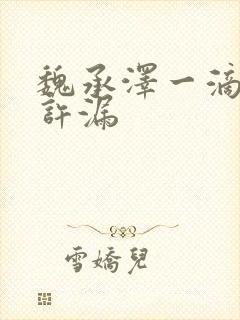 魏承澤一滴
許漏
雪嬌兒